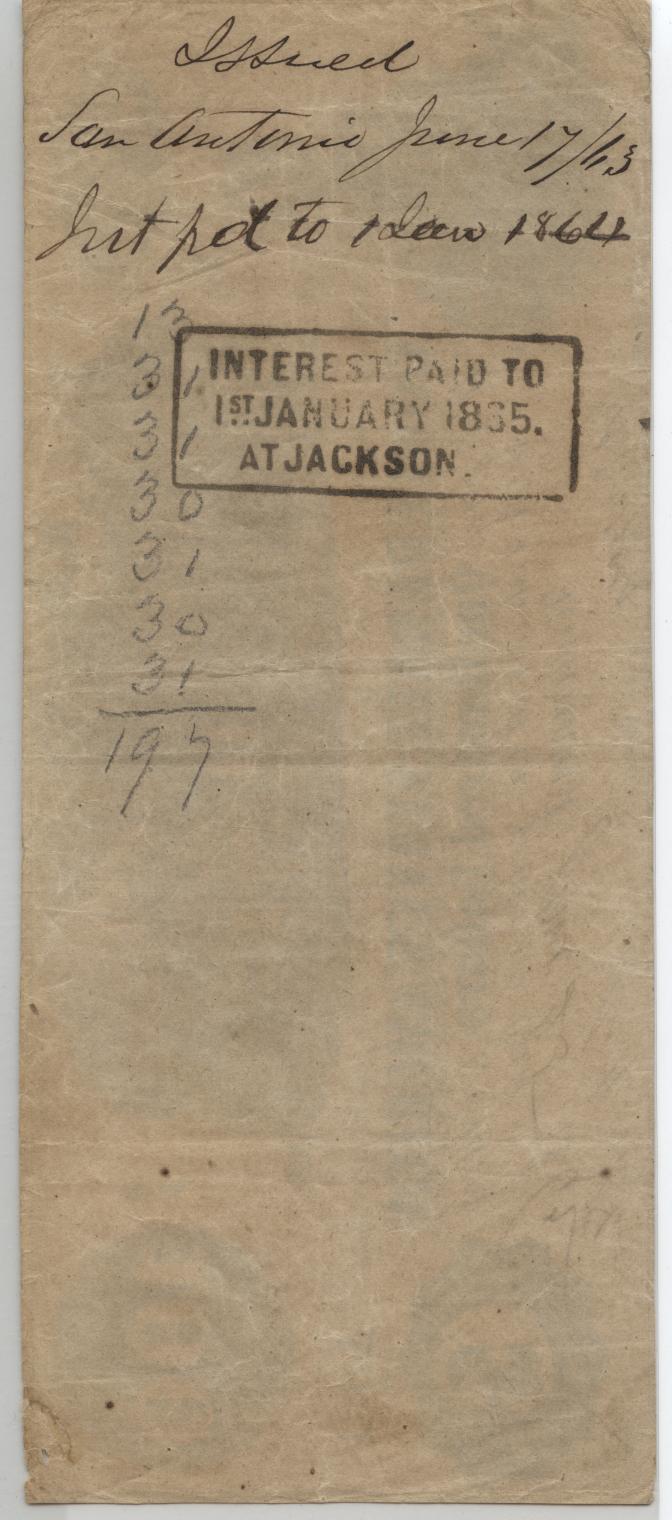 Issued
San Antonio June 17/63
Int pd to 1 Jan 1864
13
31
31
30
31
30
31
197
INTEREST PAID TO
1ST JANUARY 1865.
AT JACKSON.